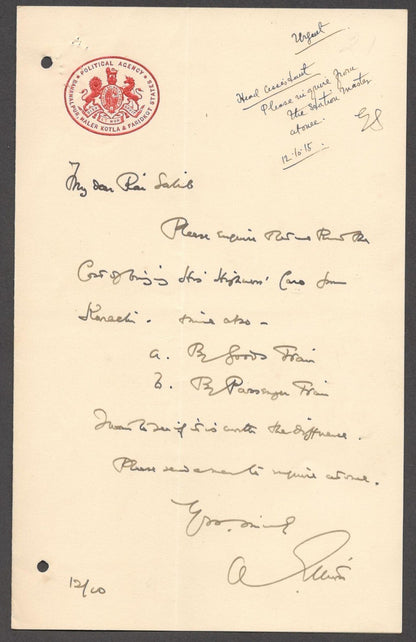 POLITICAL AGENCY
BAHAWALPUR, MALER KOTLA & FARIDKOT STATES
Urgent
Head assistant
Please inquire from
the Station Master
atonce.
12.10.15.
My dear Rai Sahib
Please enquire the
Cost of bringing His Highness' Cars from
Karachi. time also -
a. By Goods Train
b. By Passenger Train
I want to see if it is worth the difference.
Please send a man to inquire at once.
Yrs. sincely
12/10